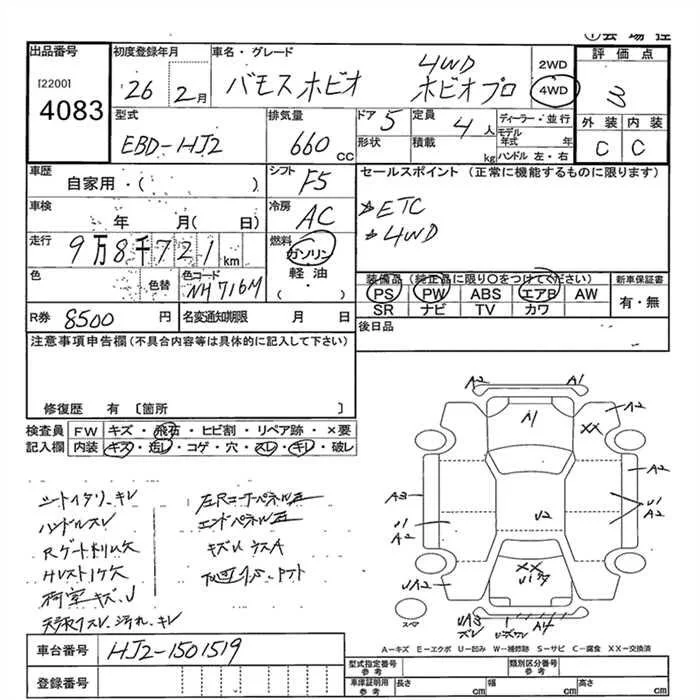 出品番号
[2200]
4083
初度登録年月
26 2月
車名・グレード
バモスホビオ
4WD
ホビオプロ
2WD
4WD
評価点
3
外装 内装
C C
型式
EBD-HJ2
排気量
660 CC
ドア 5
形状
定員 4 人
積載 kg
ディーラー・並行
モデル年式 年
ハンドル 左・右
車歴
自家用・( )
シフト F5
セールスポイント (正常に機能するものに限ります)
ETC
4WD
車検
年 月( 日)
冷房 AC
走行
9万8千721 km
燃料
ガソリン
軽油
( ・ )
色
色替
色コード
NH716M
装備品 (純正品に限り〇をつけてください)
PS PW ABS エアB AW
SR ナビ TV カワ
新車保証書
有・無
R券 8500 円
名変通知期限 月 日
後日品
注意事項申告欄(不具合内容等は具体的に記入して下さい)
修復歴 有 〔箇所 〕
検査員記入欄
FW キズ・飛石・ヒビ割・リペア跡・×要
内装 キズ・汚レ・コゲ・穴・スレ・キレ・破レ
シートイタリ、キレ
ハンドルスレ
荷室キズ、U
天張スレ、汚れ、キレ
エンドパネル歪
A2 A1
A1
A2
XX
A2
A3
U1
A2
U1
A2
U2
UA2
XX
A4
スペア
A-キズ E-エクボ U-凹み W-補修跡 S-サビ C-腐食 XX-交換済
車台番号 HJ2-1501519
登録番号
型式指定番号 参考
類別区分番号 参考
車庫証明用 参考
長さ cm
幅 cm
高さ cm